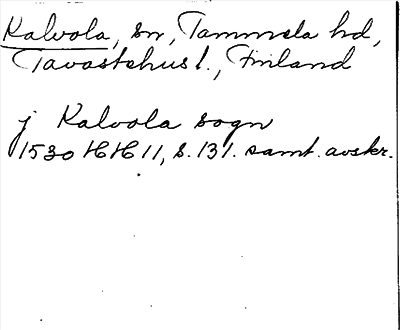 Kalvola, sn, Tammela hd,
Tavastehus l., Finland
j Kalvola sogn
1530 HH 11, s. 131. samt. avskr.